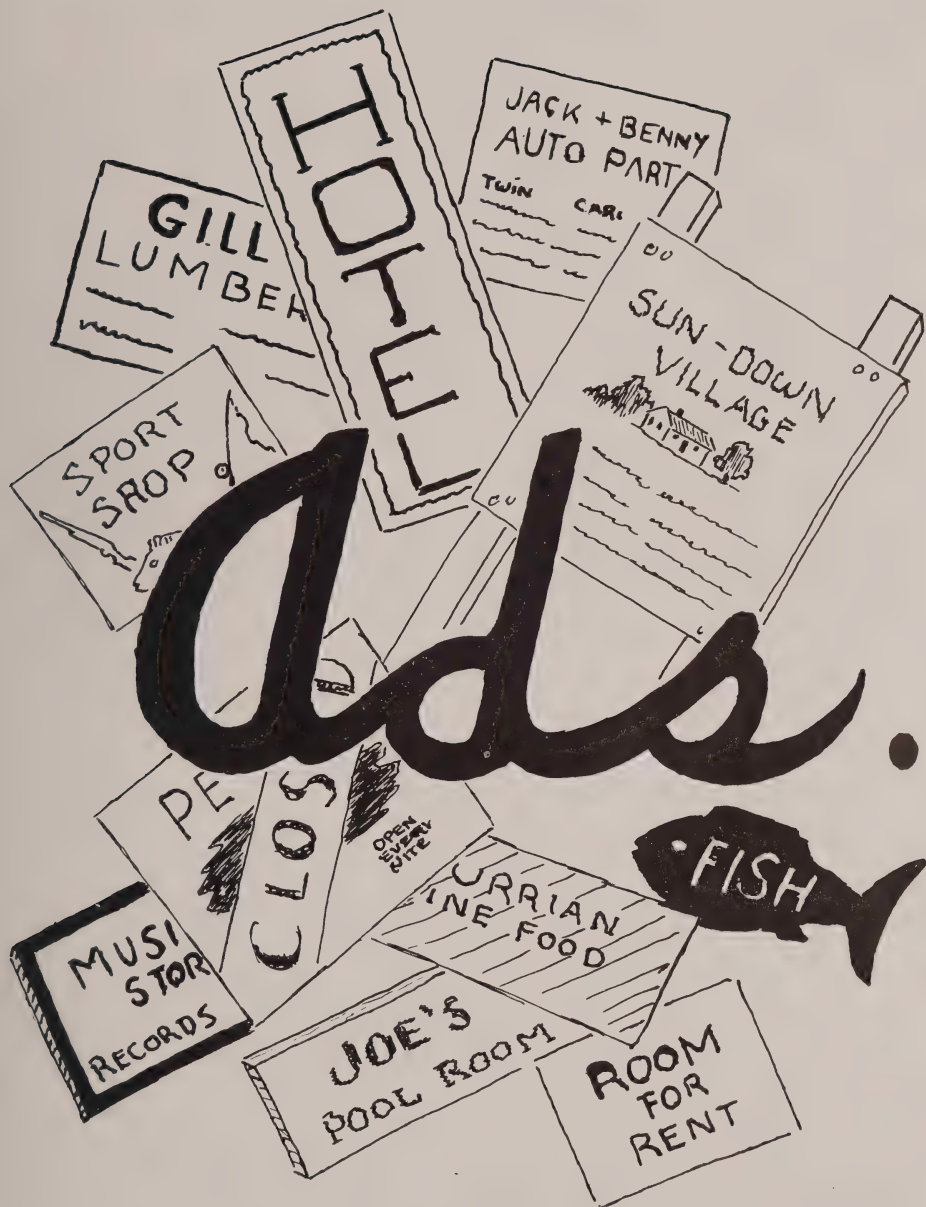 HOTEL
JACK + BENNY
AUTO PART
TWIN CARL
GILL
LUMBER
SUN-DOWN
VILLAGE
SPORT
SHOP
Ads.
PE
CLOS
OPEN
EVERY
NITE
FISH
URRIAN
INE FOOD
MUSI
STOR
RECORDS
JOE'S
POOL ROOM
ROOM
FOR
RENT